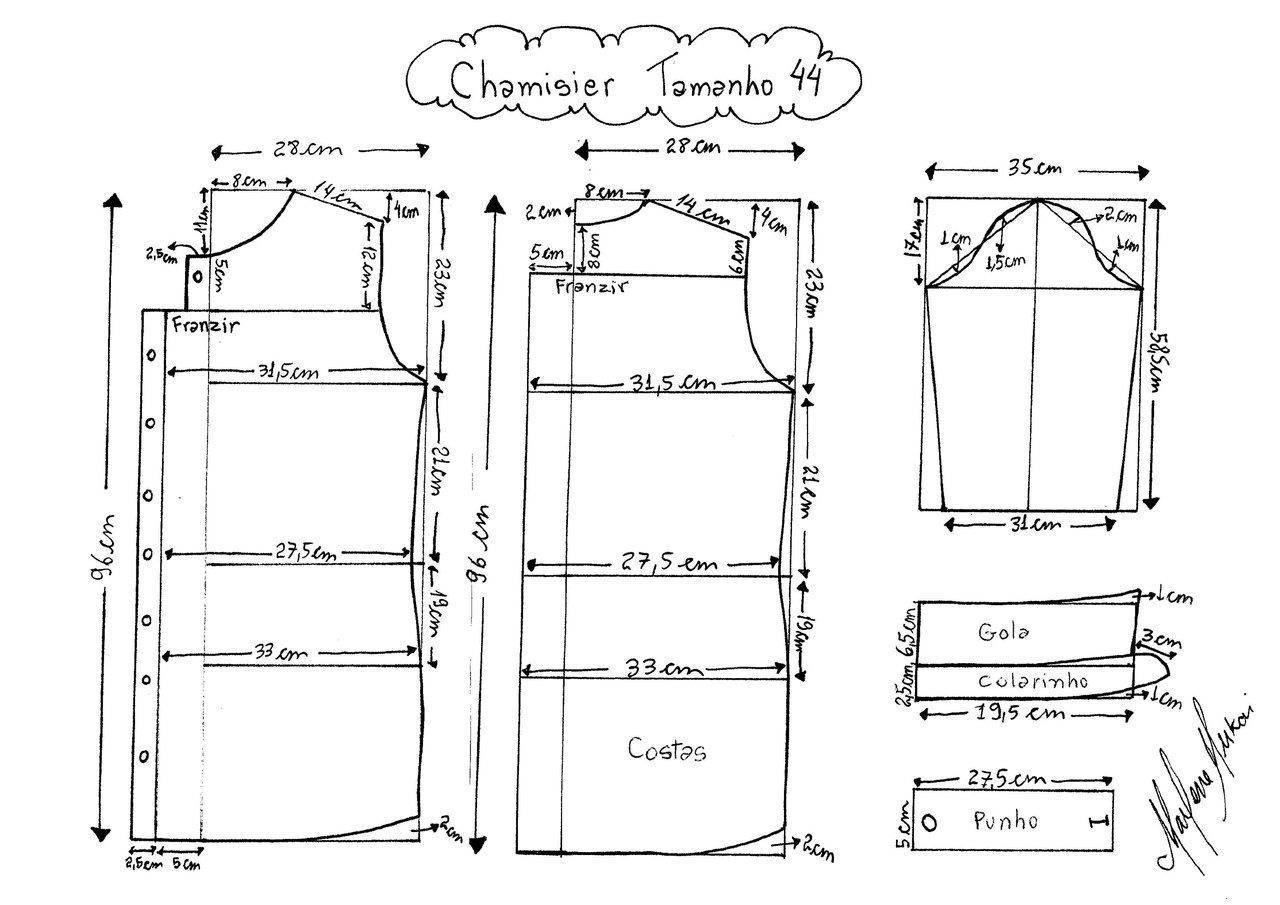 Chamisier Tamanho 44
28cm
8cm
14cm
4cm
11cm
2,5cm
5cm
12cm
23cm
Franzir
31,5cm
21cm
96cm
27,5cm
19cm
33cm
2cm
2,5cm
5cm
28cm
8cm
2cm
14cm
4cm
5cm
8cm
9cm
23cm
Franzir
31,5cm
21cm
96cm
27,5cm
19cm
33cm
Costas
2cm
35cm
17cm
2cm
1cm
1,5cm
1cm
58,5cm
31cm
1cm
Gola
6,5cm
3cm
Colarinho
2,5cm
1cm
19,5cm
27,5cm
5cm
Punho
Marlene Mukai